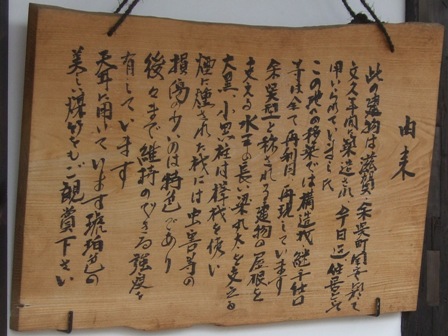 由来
此の建物は滋賀県余呉町 に
文久年間に築造され、今日迄住居として
用いられていました。
この地への移築では構造材、継手、仕口
等は全て再利用、再現しています
余呉型と称される建物の屋根を
支える水平の長い梁、丸太を支える
大黒、小黒柱は欅材を使い
煙に燻された材には虫害等の
損傷の少いのは特色であり
後々まで維持のできる強度を
有しています
天井に用いています琥珀色の
美しい煤竹をもご観賞下さい